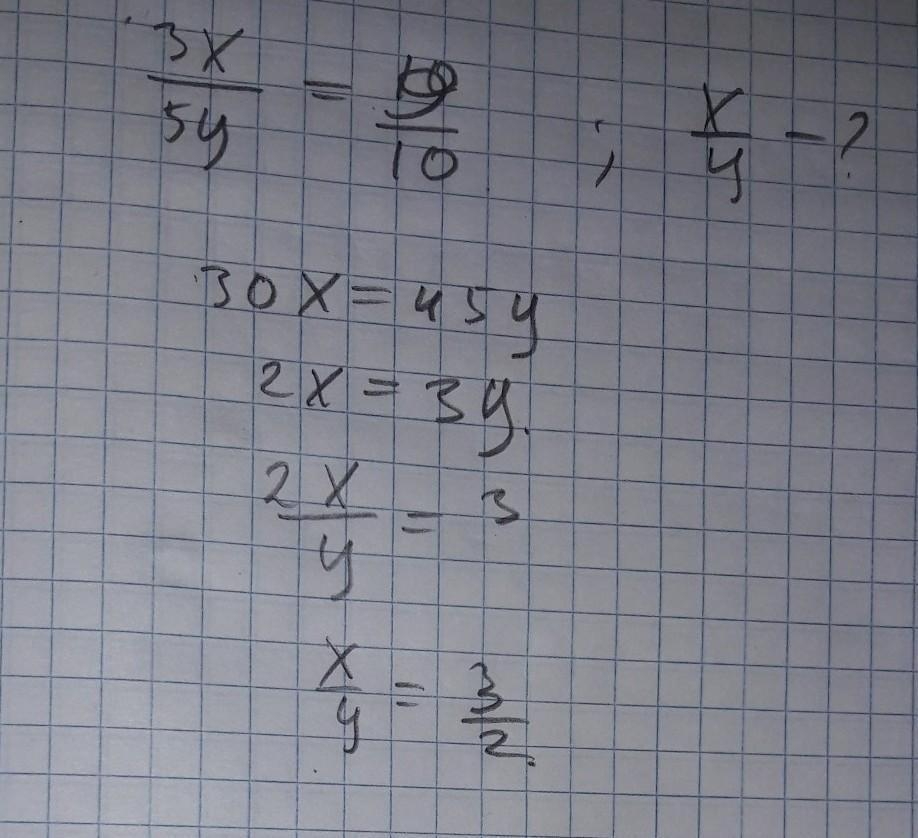 3x/5y = 9/10 ; x/y - ?
30x = 45y
2x = 3y.
2x/y = 3
x/y = 3/2.